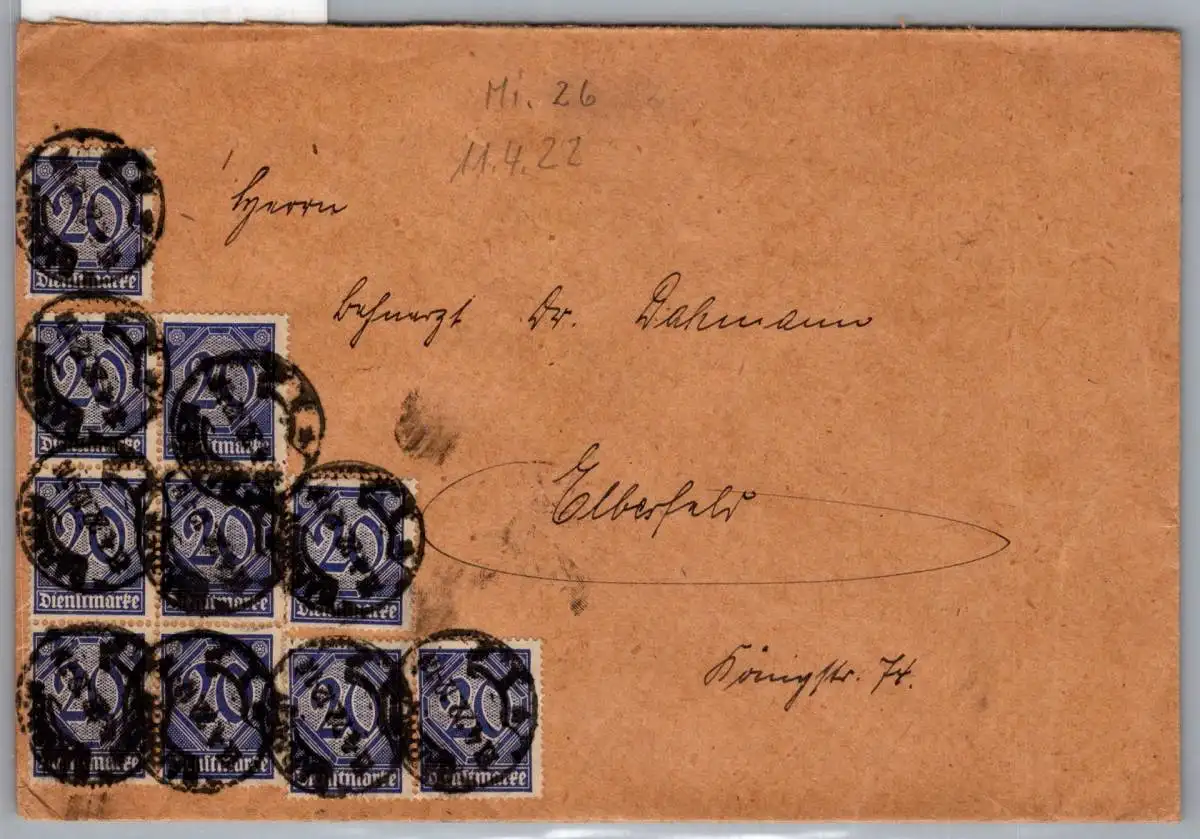 Mi. 26
11.4.22
Herrn
Zahnarzt Dr. Dahmann
Elberfeld
Königstr. 74.
20
Dienstmarke
20
Dienstmarke
20
Dienstmarke
20
Dienstmarke
20
Dienstmarke
20
Dienstmarke
20
Dienstmarke
20
Dienstmarke
20
Dienstmarke
20
Dienstmarke